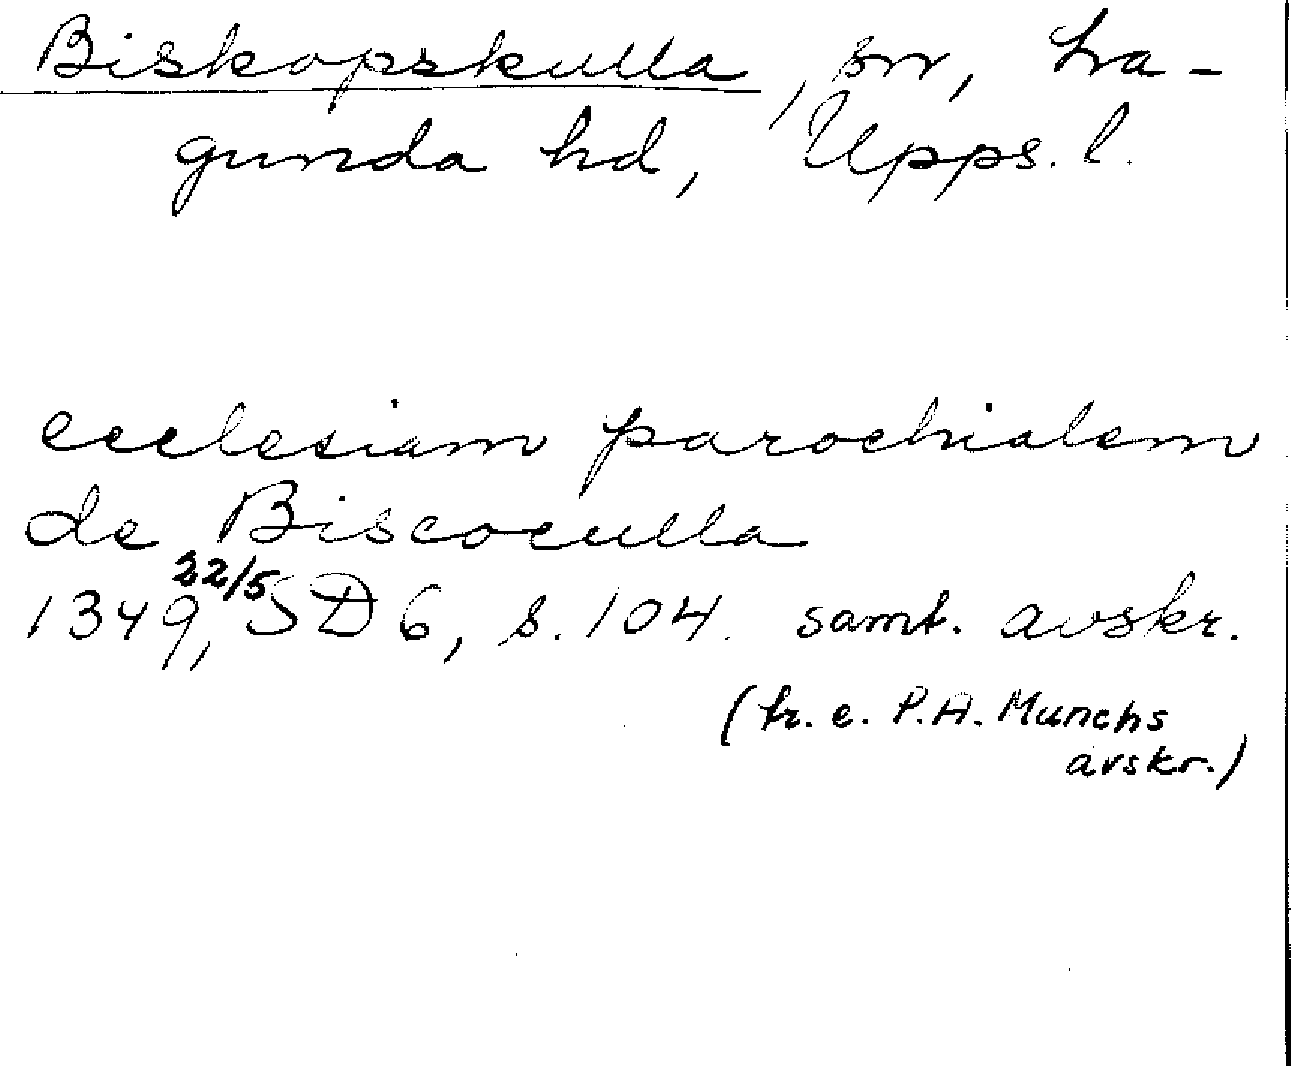 Biskopskulla, sn, La-
gunda hd, Upps. l.
ecclesiam parochialem
de Biscoculla
1349 22/5, SD 6, s. 104. samt. avskr.
(tr. e. P.A. Munchs
avskr.)